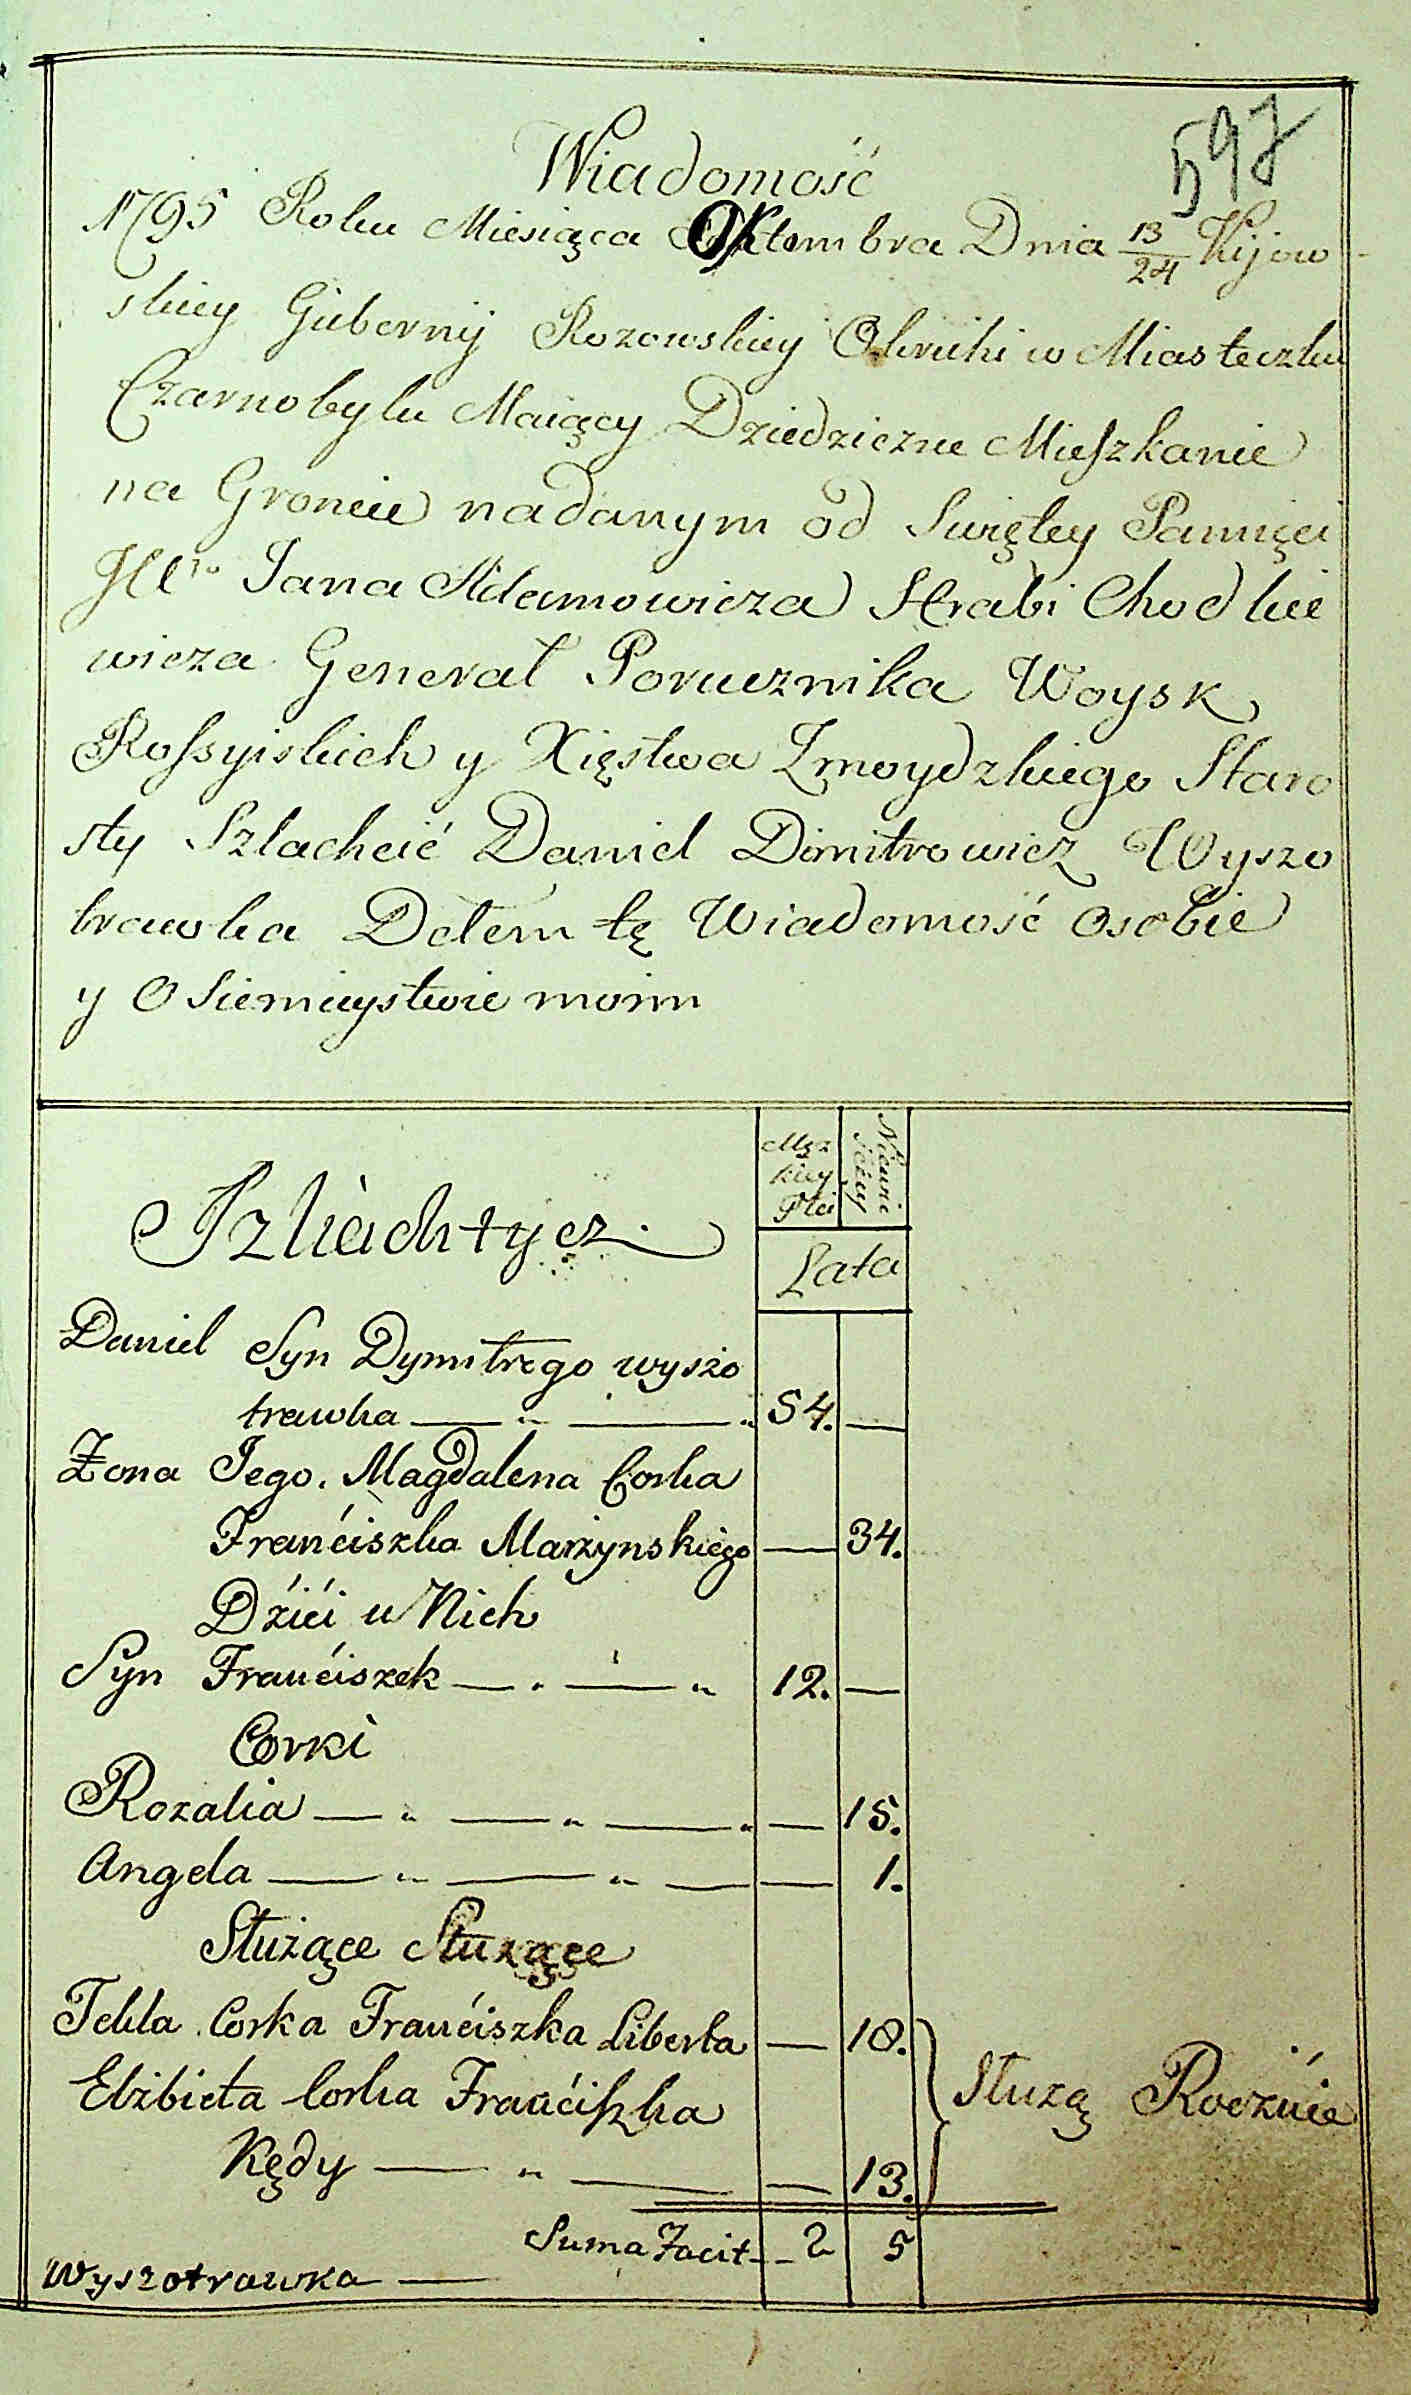 597
Wiadomość
1795 Roku Miesiąca Oktombra Dnia 13/24 Kijow-
skiey Gubernij Rozowskiey Okruhi w Miasteczku
Czarnobylu Maiący Dziedziczne Mieszkanie
na Groncie nadanym od Swiętey Pamięci
Jana Adamowicza Hrabi Chodkie
wicza Generał Porucznika Woysk
Rossyiskich y Xięstwa Zmoydzkiego Staro
sty Szlachcić Daniel Dimitrowicz Wyszo
trawka Dałem tę Wiadomość Osobie
y O Siemieystwie moim
Męz Niewie
kiey sciey
Płci
Szliachtycz
Lata
Daniel Syn Dymitrego wyszo
trawka — „ — „ 54. —
Żona Jego. Magdalena Corka
Franćiszka Marzynskiego — 34.
Dźići u Nich
Syn Franćiszek — „ — „ 12. —
Corki
Rozalia — „ — „ — „ — 15.
Angela — „ — „ — — 1.
Służące Służące
Tekla Corka Franćiszka Liberta — 18.
Elżbieta Corka Franćiszka
Służą Roczńie
Kędy — „ — — 13.
Suma Facit - - 2 5
Wyszotrawka —